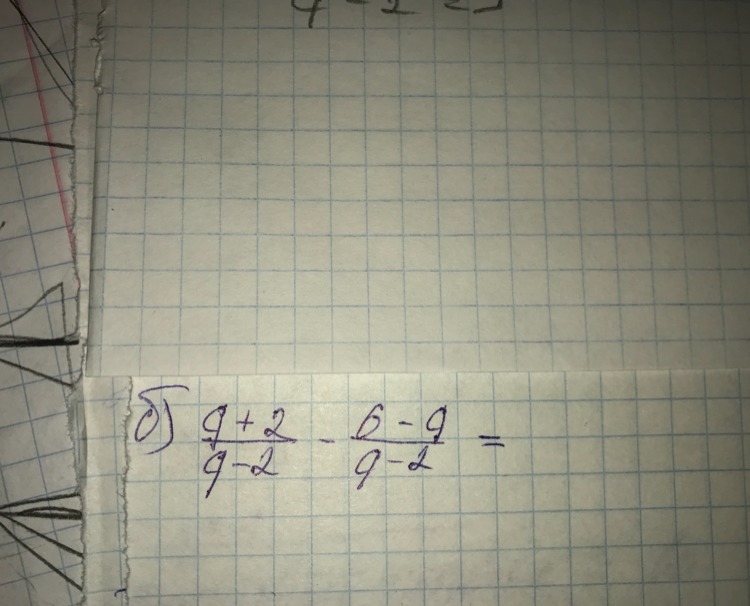 б) (q + 2)/(q - 2) - (6 - q)/(q - 2) =